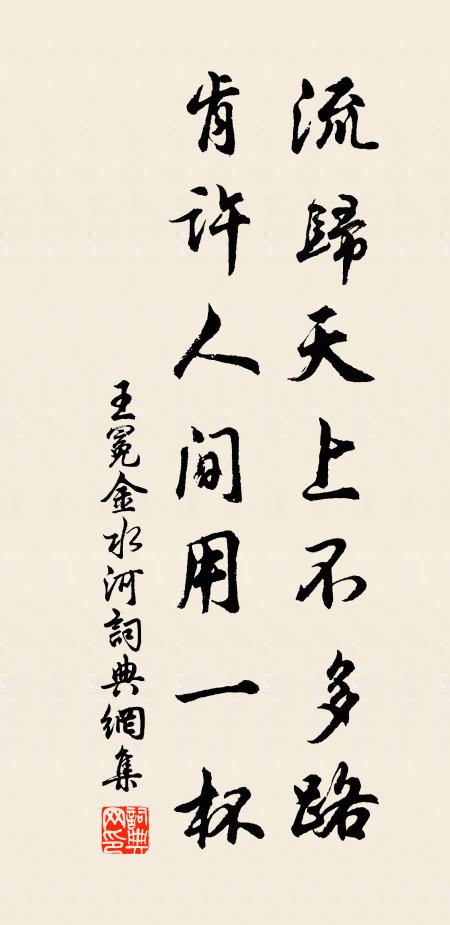 流歸天上不多路
肯許人間用一杯
王冕金水河詞典網集
詞典網印